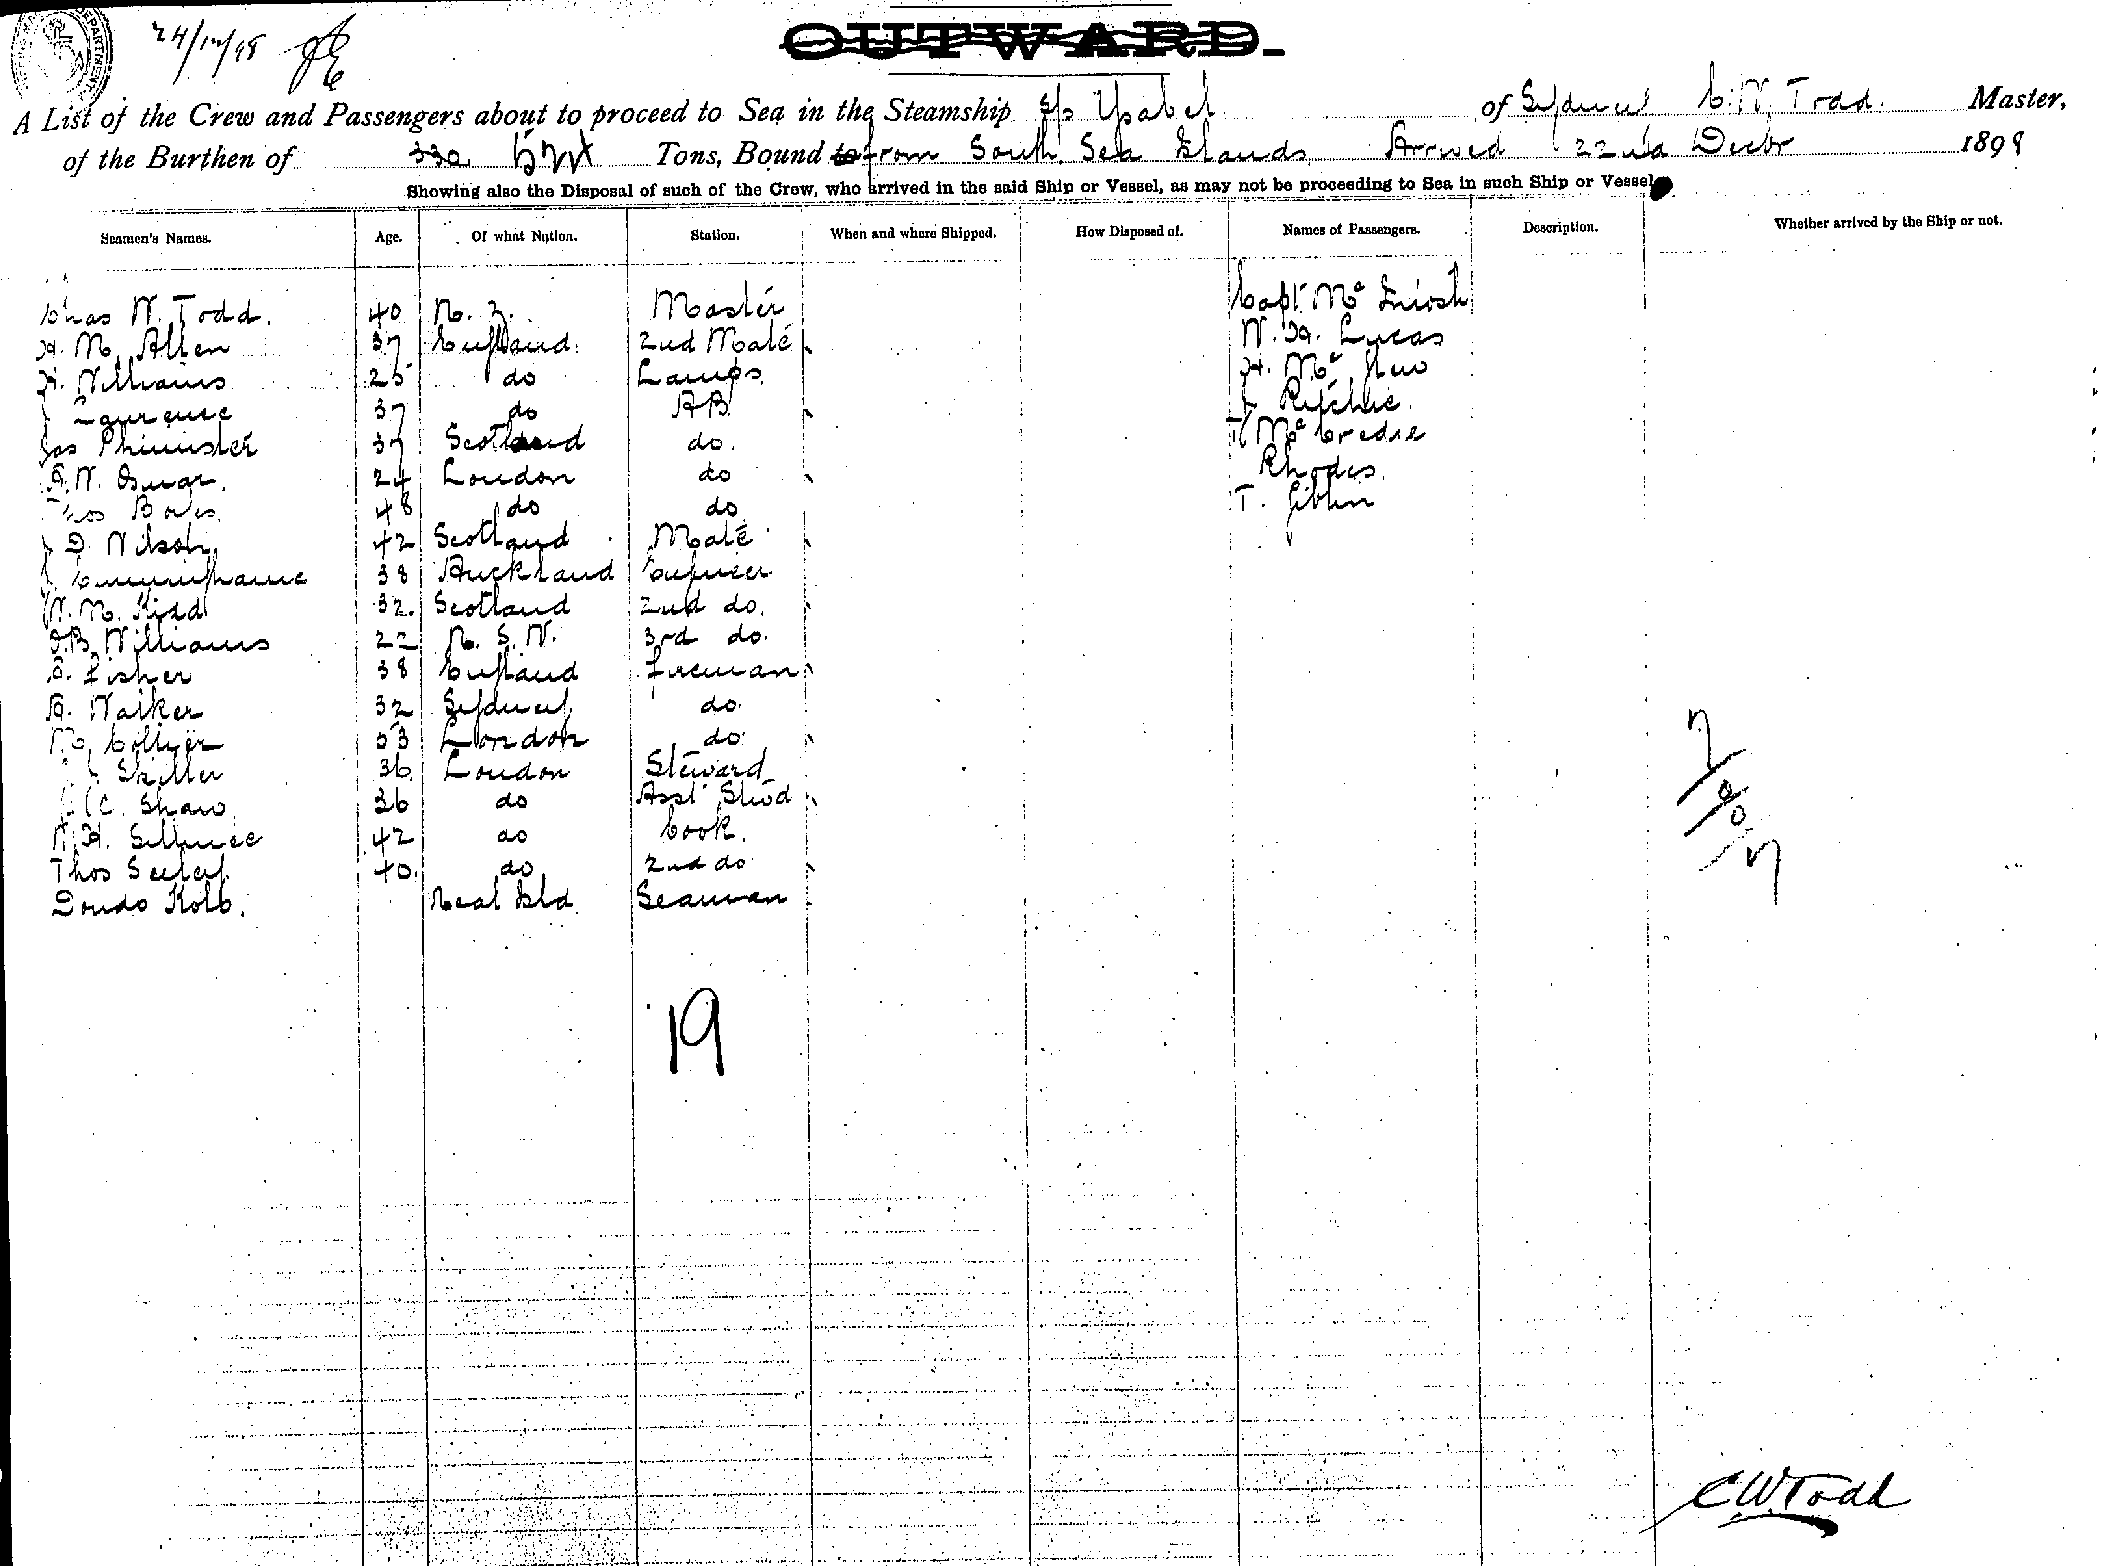 24/12/98
OUTWARD.
A List of the Crew and Passengers about to proceed to Sea in the Steamship S/s Ysabel of Sydney C. W. Todd. Master,
of the Burthen of 330 Tons, Bound to from South Sea Islands Arrived 22nd Decbr 1898
Showing also the Disposal of such of the Crew, who arrived in the said Ship or Vessel, as may not be proceeding to Sea in such Ship or Vessel.
Seamen's Names. Age. Of what Nation. Station. When and where Shipped. How Disposed of. Names of Passengers. Description. Whether arrived by the Ship or not.
Chas W. Todd. 40 N. Z. Master Capt. Mc
H. M. Allen 37 England. 2nd Mate W. H. Lucas
H. Williams 25 do Lamps. H. Mc
J Laurence 37 do AB J Ritchie.
Jas Phimister 37 Scotland do. T Mc Credie
A. W. 24 London do Rhodes
Thos 48 do do T. Giblin
J D. Wilson 42 Scotland Mate
J Cunninghame 38 Auckland Engineer
W. M. Kidd 32. Scotland 2nd do.
A. B. Williams 22 N. S. W. 3rd do.
A. Fisher 38 England fireman
A. Walker 32 Sydney do.
M. Collyer 53 London do
J. Skiller 36 London Steward
C. Shaw 36 do Asst Stwd
W. H. 42 do Cook.
Thos 40. do 2nd do
Dondo Kolo. Neal Isld Seaman
19
C W Todd